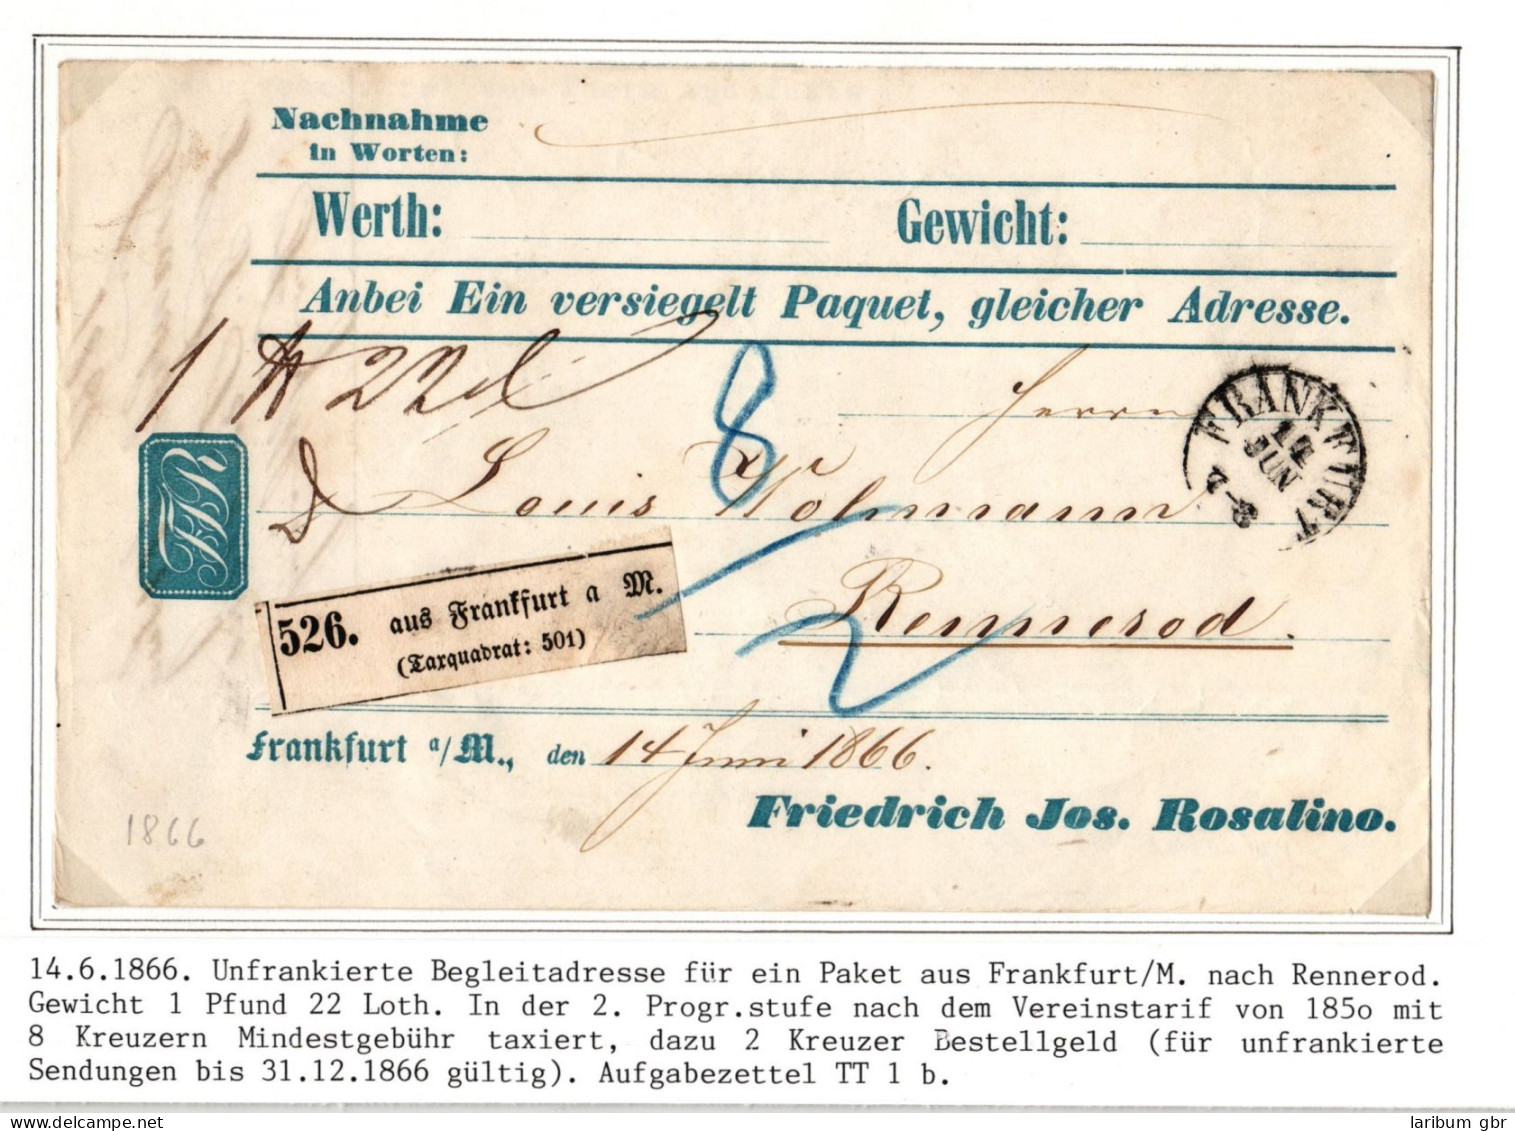 Nachnahme
in Worten:
Werth: Gewicht:
Anbei Ein versiegelt Paquet, gleicher Adresse.
1 22
8
Herrn
FRANKFURT
14
JUN
FJR
Louis
526. aus Frankfurt a M.
(Taxquadrat: 501)
Rennerod.
2
Frankfurt a/M., den 14 Juni 1866.
Friedrich Jos. Rosalino.
1866
14.6.1866. Unfrankierte Begleitadresse für ein Paket aus Frankfurt/M. nach Rennerod.
Gewicht 1 Pfund 22 Loth. In der 2. Progr.stufe nach dem Vereinstarif von 185o mit
8 Kreuzern Mindestgebühr taxiert, dazu 2 Kreuzer Bestellgeld (für unfrankierte
Sendungen bis 31.12.1866 gültig). Aufgabezettel TT 1 b.
laribum gbr